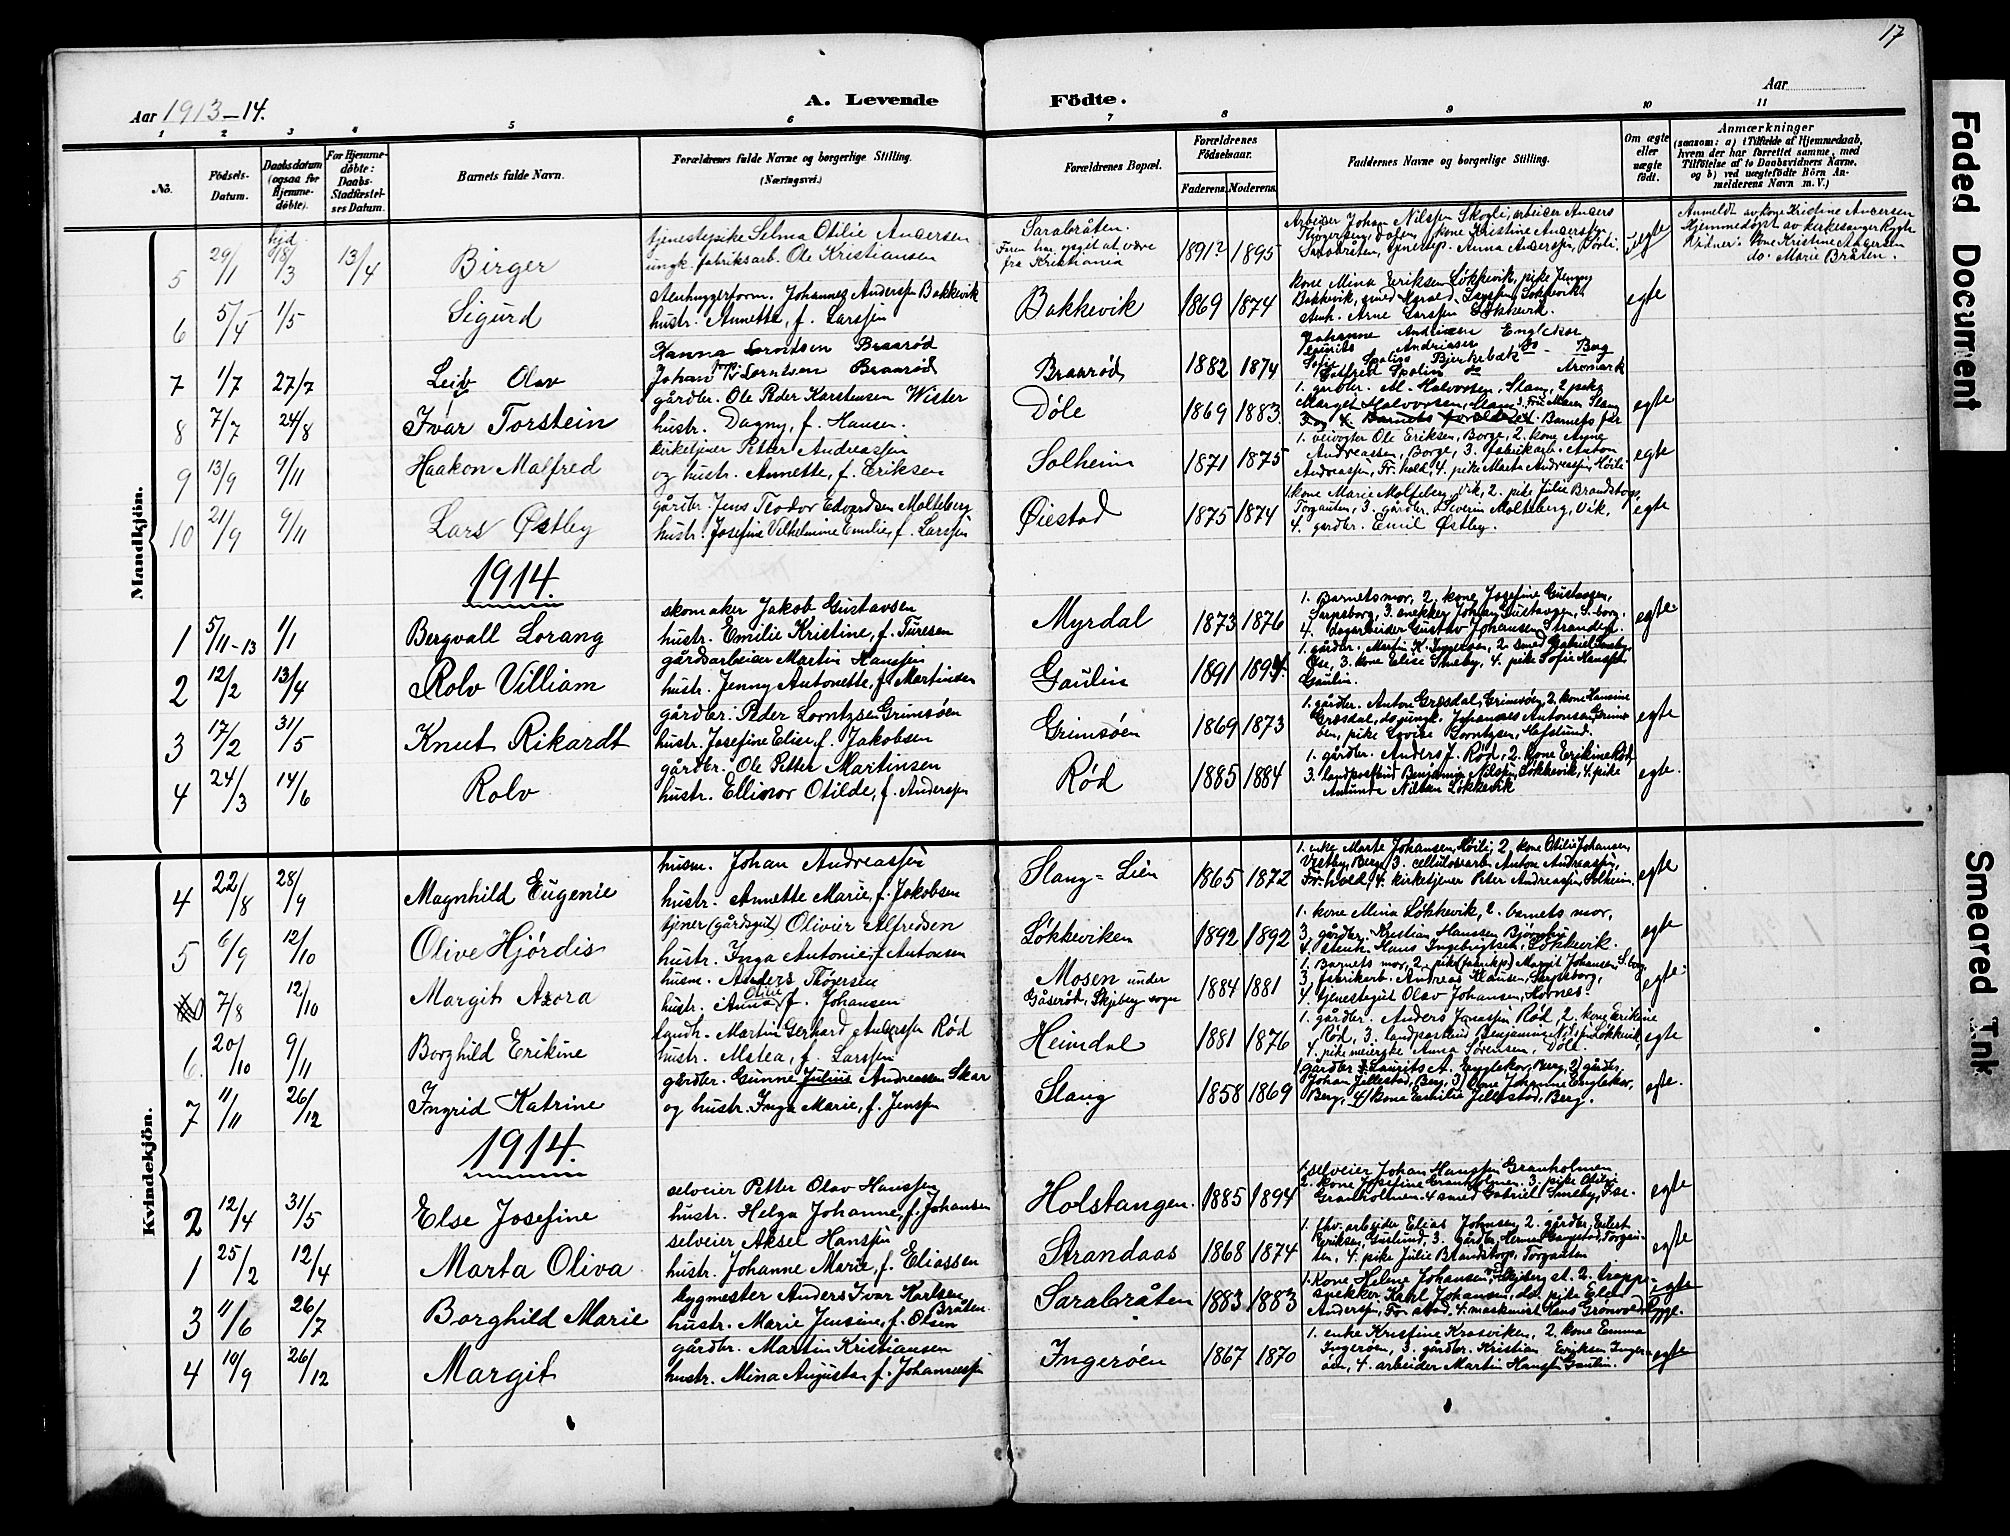 17
Aar 1913-14.
A. Levende Födte.
Aar
1 2 3 4 5 6 7 8 9 10 11
No.
Födsels-Datum.
Daabsdatum (ogsaa for Hjemmedöbte).
For Hjemmedöbte: Daabs-Stadfæstelses Datum.
Barnets fulde Navn.
Forældrenes fulde Navne og borgerlige Stilling. (Næringsvei.)
Forældrenes Bopæl.
Forældrenes Födselsaar.
Faderens. Moderens.
Faddernes Navne og borgerlige Stilling.
Om ægte eller uægte födt.
Anmærkninger
(saasom: a) i Tilfælde af Hjemmedaab, hvem der har forrettet samme, med Tilföielse af to Daabsvidners Navne, og b) ved uægtefödte Börn Anmelderens Navn m. V.)
Mandkjön.
5 29/1 hjd. 9/8/3 13/4 Birger
tjenestepike Selma Otilie Andersen
ungk. fabriksarb. Ole Kristiansen
Sarabråten.
Faren har opgit at være
fra Kristiania
1891? 1895
Arbeider Johan Nilssen Skogli, arbeider Anders
Thogersen, kone Kristine Anderssen
Sarabråten, Anna Anderssen,
uegte
Anmeldt av kone Kristine Andersen
Hjemmedøpt av kirkesanger Rygh
Vidner: Kone Kristine Andersen
do. Marie Bråten.
6 5/4 1/5 Sigurd
Stenhuggerform. Johannes Anderssen Bakkevik
hustr. Annette, f. Larssen
Bakkevik 1869 1874
kone Mina Eriksen Løkkevik, pike Jenny
Bakkevik, smed Larssen, Løkkevik
stenh. Arne Larssen Løkkevik.
egte
7 1/7 27/7 Leif Olav
Hanna Lorntsen Braarød
Johan Lorntsen Braarød
Braarød 1882 1874
Johanne Andreasen Englekor
Laurits Andreasen do - Berg
Sofie Spolin Bjerkebæk
Gotfred Spolin do Aremark
8 7/7 24/8 Ivar Torstein
gårdbr. Ole Peder Karstensen Wister
hustr. Dagny, f. Hansen.
Døle 1869 1883.
1. grdbr. M. Halvorsen, Slang, 2 pike
Margit Halvorsen, Slang 3. Maren Slang
4. Barnets far
egte
9 13/9 9/11 Haakon Malfred
kirketjener Petter Andreassen
og hustr. Annette, f. Eriksen
Solheim 1871 1875
1. veivogter Ole Eriksen, Borge, 2. kone Agne
Andreassen, Borge, 3. fabrikarb. Anton
Andreassen, Fr. hald, 4. pike Marta Andreassen, Høili
egte
10 21/9 9/11 Lars Østby
gårdbr. Jens Teodor Edvardsen Molteberg
hustr. Josefine Vilhelmine Emilie, f. Larssen
Øiestad 1875 1874
1. kone Marie Molteberg, Vik, 2. pike Julie Brandstorp,
Torgauten, 3. gårdbr. Severin Molteberg, Vik,
4. gardbr. Emil Østby.
egte
1914.
1 5/11-13 1/1 Bergvall Lorang
skomaker Jakob Gustavsen
hustr. Emilie Kristine, f. Turesen
Myrdal 1873 1876
1. Barnets mor, 2. kone Josefine Gustavsen,
Sarpsborg, 3. snekker Johan Gustavsen, S-borg.
4. dagarbeider Gustav Johansen, Strandeg.
egte.
2 12/2 13/4 Rolv Villiam
gårdsarbeider Martin Hanssen
hustr. Jenny Antonette, f. Martinsen
Gaulin 1891 1894.
1. gårdbr. Martin K. Ingerøen, 2. smed Gabriel Smeby
3. kone Elise Smeby, 4. pike Sofie Hanssen
Gaulin.
3 17/2 31/5 Knut Rikardt
gårdbr. Peder Lorntzsen Grimsøen
hustr. Josefine Elise, f. Jakobsen
Grimsøen 1869 1873
1. gårdbr. Anton Græsdal, Grimsøen, 2. kone Hansine
Græsdal, ds, ungk. Johannes Antonsen, Grims
øen, pike Lovise Lorntzsen, Hafslund.
egte
4 24/3 14/6 Rolv
gårdbr. Ole Petter Martinsen
hustr. Ellinor Otilde, f. Anderssen
Rød 1885 1884
1. gårdbr. Anders J. Rød, 2. kone Erikine Rød,
3. landpostbud Benjamin Nilssen, Løkkevik, 4. pike
Amunda Nilsen Løkkevik
egte.
Kvindekjön.
4 22/8 28/9 Magnhild Eugenie
husm. Johan Andreassen
hustr. Annette Marie, f. Jakobsen
Slang=Lien 1865 1872
1. enke Marte Johansen, Høili, 2. kone Otilie Johansen,
Vestby, Berg, 3. cellulosearb. Anton Andreassen,
Fr. hald, 4. kirketjener Peter Andreassen, Solheim.
egte
5 6/9 12/10 Olive Hjördis
tjener (gårdsgut) Olivier Alfredsen
hustr. Inga Antonie, f. Antonsen
Løkkeviken 1892 1892
1. kone Mina Løkkevik, 2. barnets mor,
3. gårdbr. Kristian Hanssen Bjørneby
4. stenh. Hans Ingebrigtsen, Løkkevik.
egte
7/8 12/10 Margit Azora
husm. Anders Thøresen
hustr. Anna Otilie f. Johansen
Mosen under
Gåserød, Skjeberg sogn
1884 1881
1. Barnets mor, 2. pike (fabrikp.) Margit Johansen, S. borg
3. fabrikarb. Andreas Klausen, Sarpsborg,
4. tjenestegut Olav Johansen, Hornes.
egte.
6. 20/10 9/11 Borghild Erikine
Martin Gerhard Anderssen Rød
hustr. Alstea, f. Larssen
Heimdal 1881 1876
1. gårdbr. Anders Jonassen Rød, 2. kone Erikine
Rød, 3. landpostbud Benjamin Nilssen Løkkevik,
4. pike meierske Anna Sørensen, Døle
egte
7 11/11 26/12 Ingrid Katrine
gårdbr. Gunne Julius Andreassen Skar
og hustr. Inga Marie, f. Jenssen
Slang 1858 1869
gårdbr. Laurits A. Englekor, Berg, 2) gårdbr.
Johan Jellestad, Berg, 3) kone Johanne Englekor,
Berg, 4) kone Emilie Jellestad, Berg.
egte.
1914.
2 12/4 31/5 Else Josefine
selveier Petter Olav Hanssen
hustr. Helga Johanne, f. Johansen
Holstangen. 1885 1894
1. selveier Johan Hanssen Granholmen
2. kone Josefine Granholmen. 3. pike Otilie
Granholmen. 4 smed Gabriel Smeby,
egte
1 25/2 12/4 Marta Oliva
selveier Aksel Hanssen
hustr. Johanne Marie, f. Eliassen
Strandaas 1868 1874
1. fhv. arbeider Elias Johnsen, 2. gårdbr. Eilert
Eriksen, Guslund, 3. gårdbr. Herman Torgau-
ten, 4. pike Julie Brandstorp, Torgauten
egte
3 11/6 26/7 Borghild Marie
bygmester Anders Ivar Karlsen
Bråten.
hustr. Marie Jensine, f. Olsen
Sarabråten 1883 1883
1. Kone Helene Johansen, Skjeberg st. 2. trappe-
snekker Karl Johansen, do. pike Elen
Anderssen, Fr. stad, 4. maskinist Hans Grønvold Rygge.
egte
4 10/9 26/12 Margit
gårdbr. Martin Kristiansen
hustr. Mina Augusta, f. Johannessen
Ingerøen 1867 1870
1. enke Kristine Krosviken, 2. kone Emma
Ingerøen, 3. gårdbr. Kristian Eriksen Inger-
øen, 4. arbeider Martin Hanssen Gaulin.
egte
Faded Document
Smeared Ink